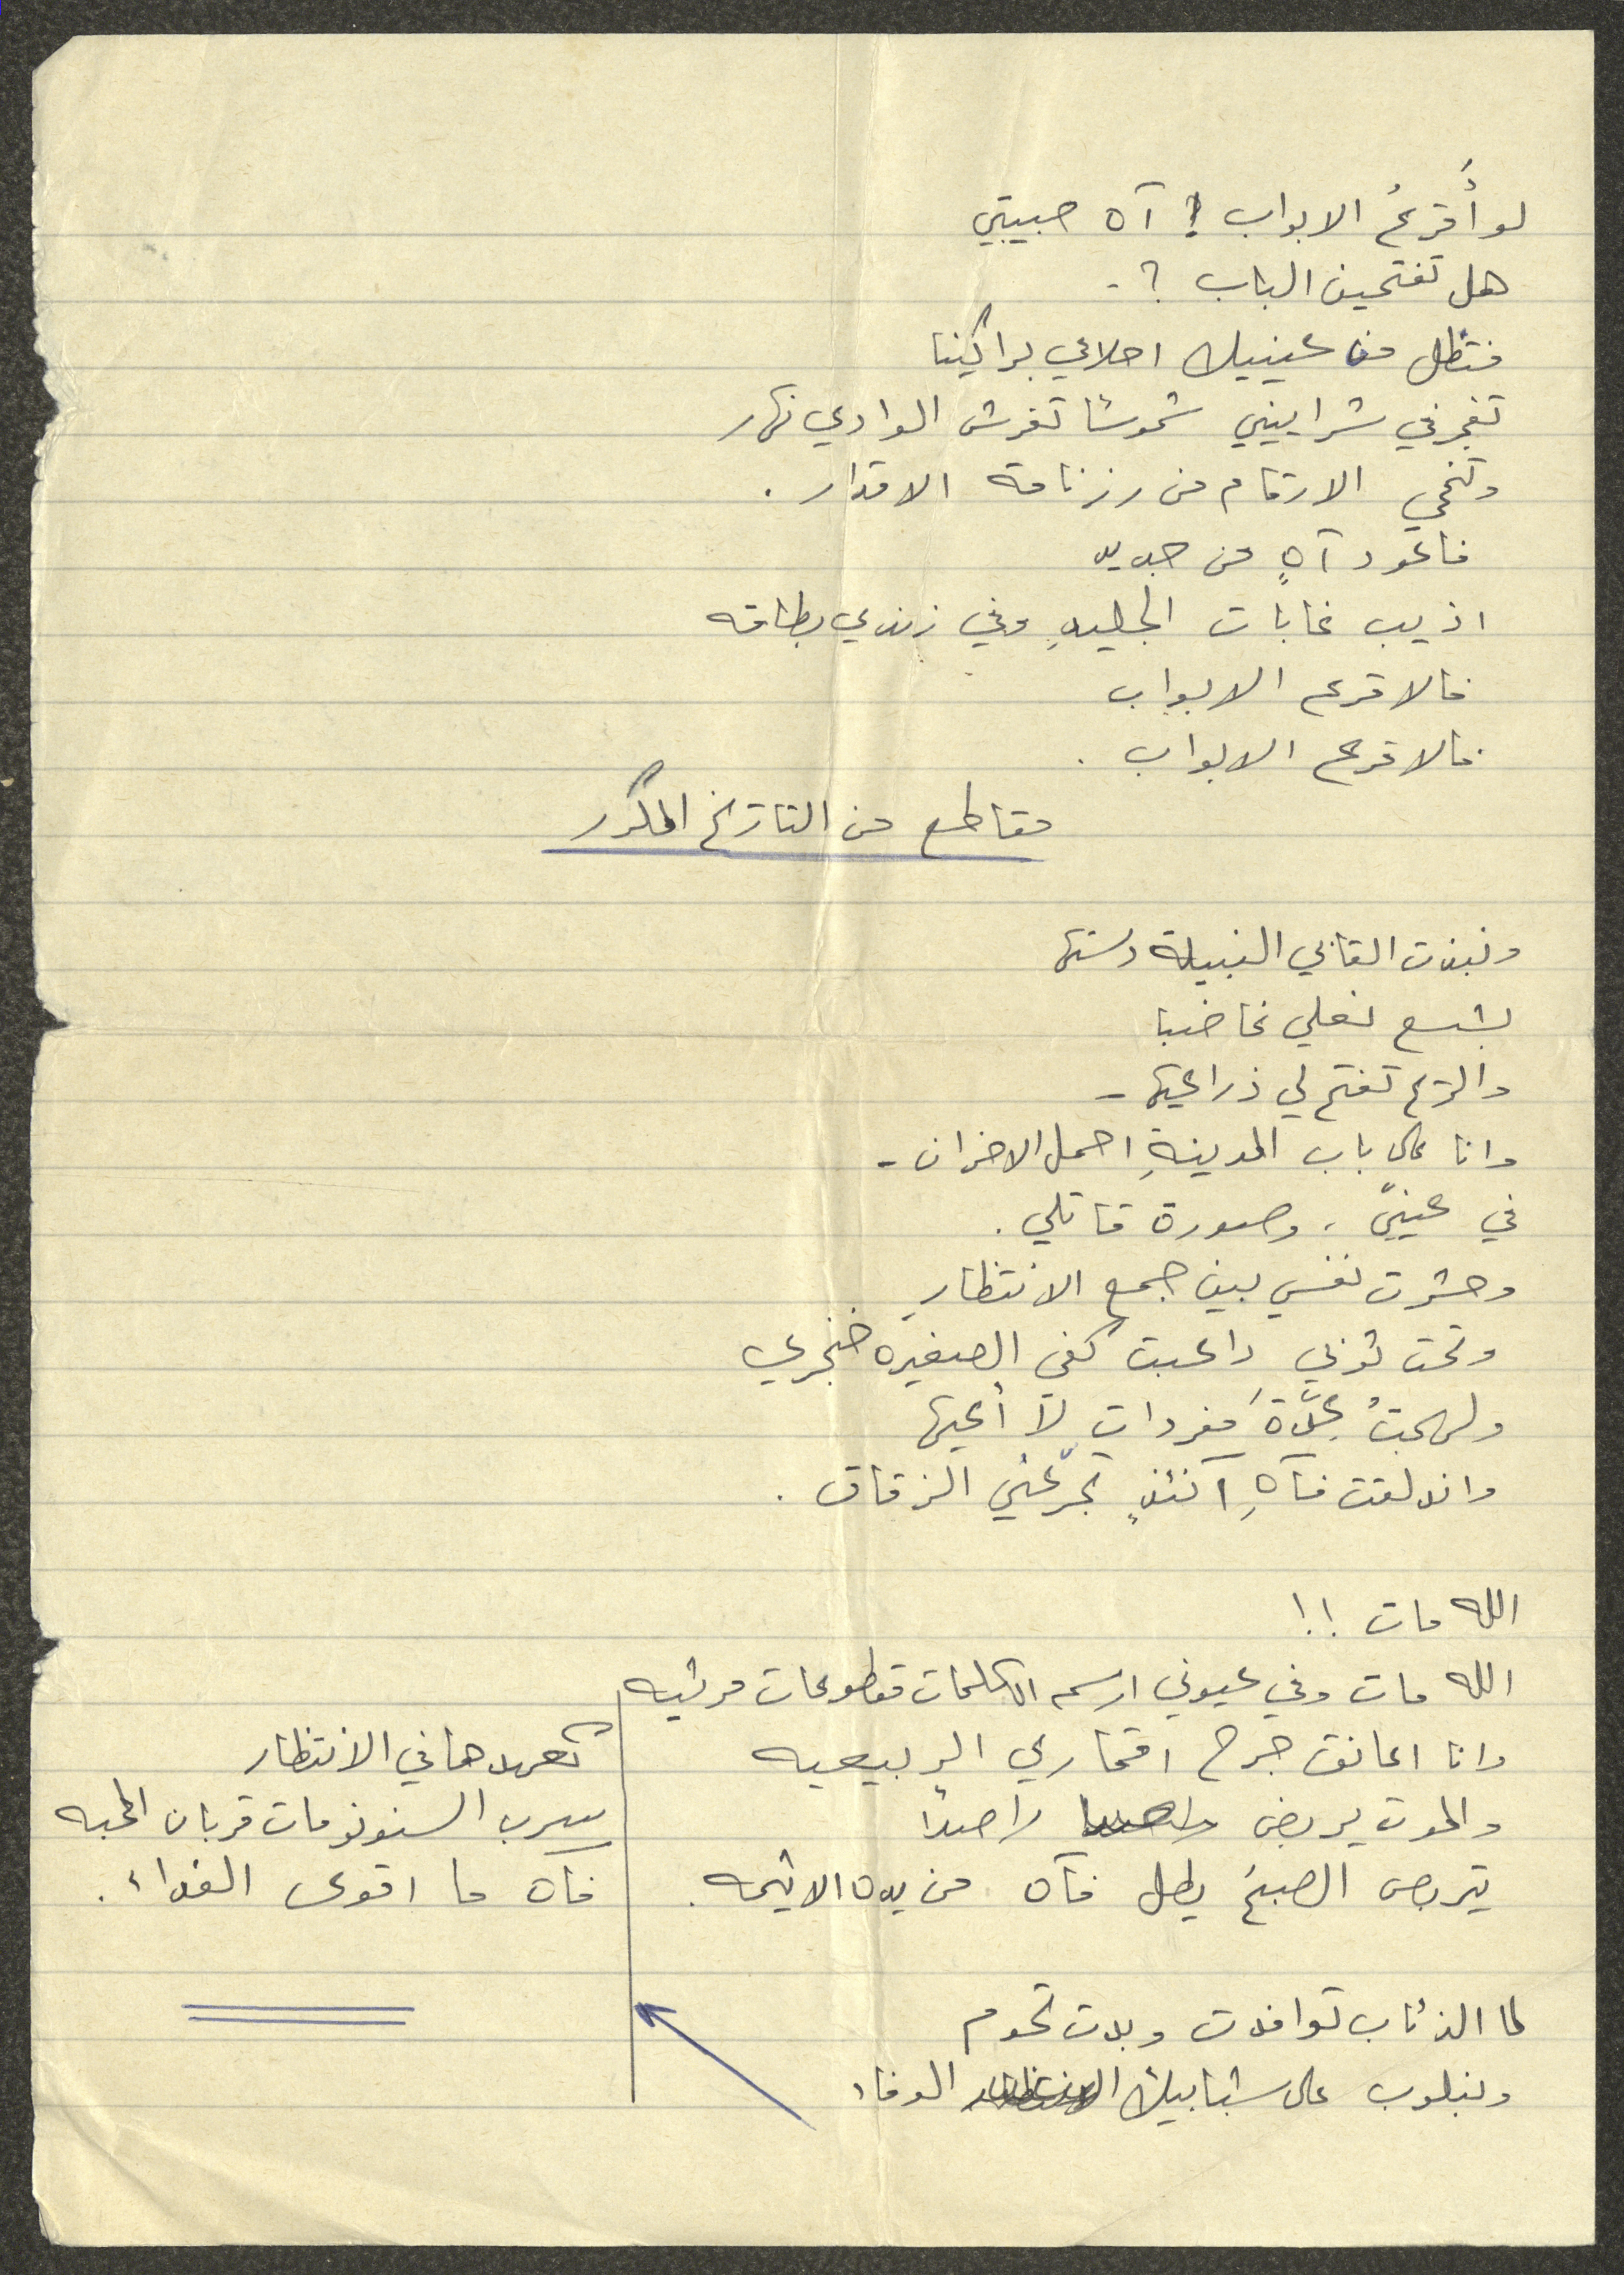 لو أُقرعُ الابواب ! آه حبيبتي
هل تفتحين الباب ؟ -
فتظل من عينيك احلامي براكينا
تفجر في شراييني شموسًا تفرش الوادي نهار
وتنمحي الارقام من رزنامة الاقدار .
فاعود آهٍ من جديد
اذيب غابات الجليدِ وفي زندي بطاقه
فالاقرع الابواب
فالاقرع الابواب .
مقاطع من التاريخ المكرر
ونبذت القابي النبيلة دستها
بشسع نعلي غاضبا
والريح تفتح لي ذراعيها -
وانا على باب المدينةِ احمل الاحزان -
في عينيّ ، وصورة قاتلي .
وحشرت نفسي بين جمع الانتظارِ
وتحت ثوبي داعبت كفي الصغيره خنجري
ولهجتُ عدَّةَ مفرداتٍ لا أعيها
واندلقت فآهِ آنئذٍ تجرّعني الزقاق .
الله مات !!
الله مات وفي عيوني ارسم الكلمات مقطوعات مرثيه
وانا اعانق جرح اقماري الربيعيه
والموت يربض راصدًا
يتربص الصبحَ يطل فآه من يده الاثيمه .
لما الذئاب توافدت وبدت تحوم
ونبلوب على شبابيك الوفاء
تعهدها في الانتظار
سرب السنونو مات قربان المحبه
فآه ما اقوى الفداء .